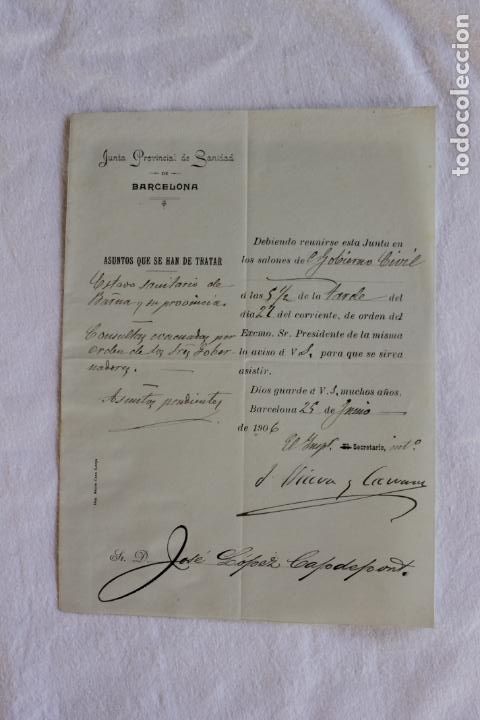 Junta Provincial de Sanidad
DE
BARCELONA
ASUNTOS QUE SE HAN DE THATAR
Estado sanitario de
Barna y su provincia.
Consultas evacuadas por
orden de los Sres Gober-
nadores.
Asuntos pendientes
Debiendo reunirse esta Junta en
los salones del Gobierno Civil
á las 5 1/2 de la tarde del
día 27 del corriente, de orden del
Excmo. Sr. Presidente de la misma
lo aviso á V. S. para que se sirva
asistir.
Dios guarde á V. S. muchos años.
Barcelona 25 de Junio
de 1906
El Secretario, int.º
y
Sr. D. José López Capdepont.
todocoleccion